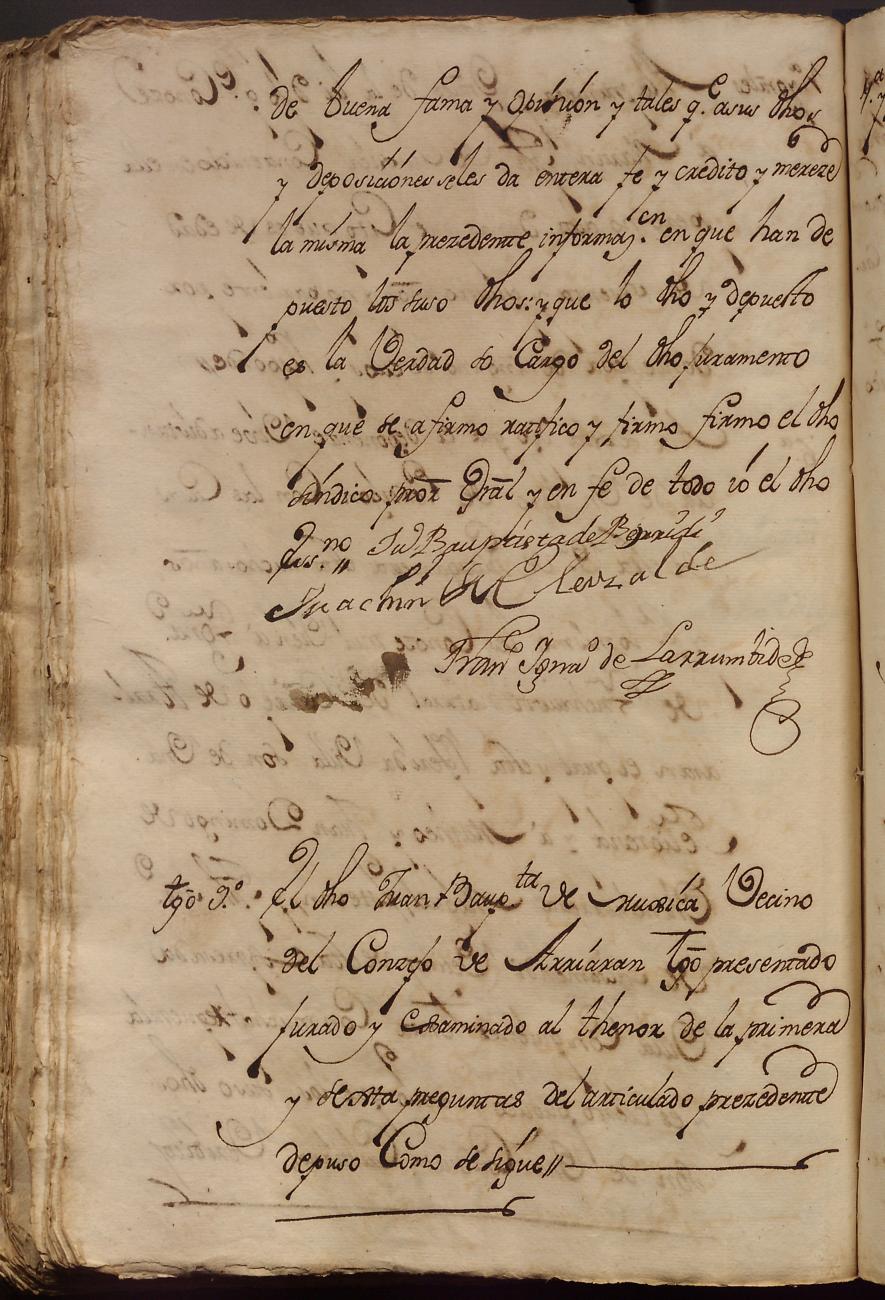 de buena fama y opinion y tales q.e a sus dhos
y deposiciones se les da entera fe y credito y mereze
la misma la prezedente informaz.on en que han de
puesto los suso dhos: y que lo dho y depuesto
es la Verdad so Cargo del dho juramento
en que se afirmo ratifico y firmo firmo el dho
sindico pror Gral y en fe de todo io el dho
ess.no // Ju Bauptista de
Juachin de Elerzalde
Fran.co Igna.o de Larrumbide
tgo 9.º El dho Juan Baup.ta de Muxica Vecino
del Conzejo de Arriaran tgo presentado
jurado y esaminado al thenor de la primera
y sesta preguntas del articulado prezedente
depuso Como se sigue //